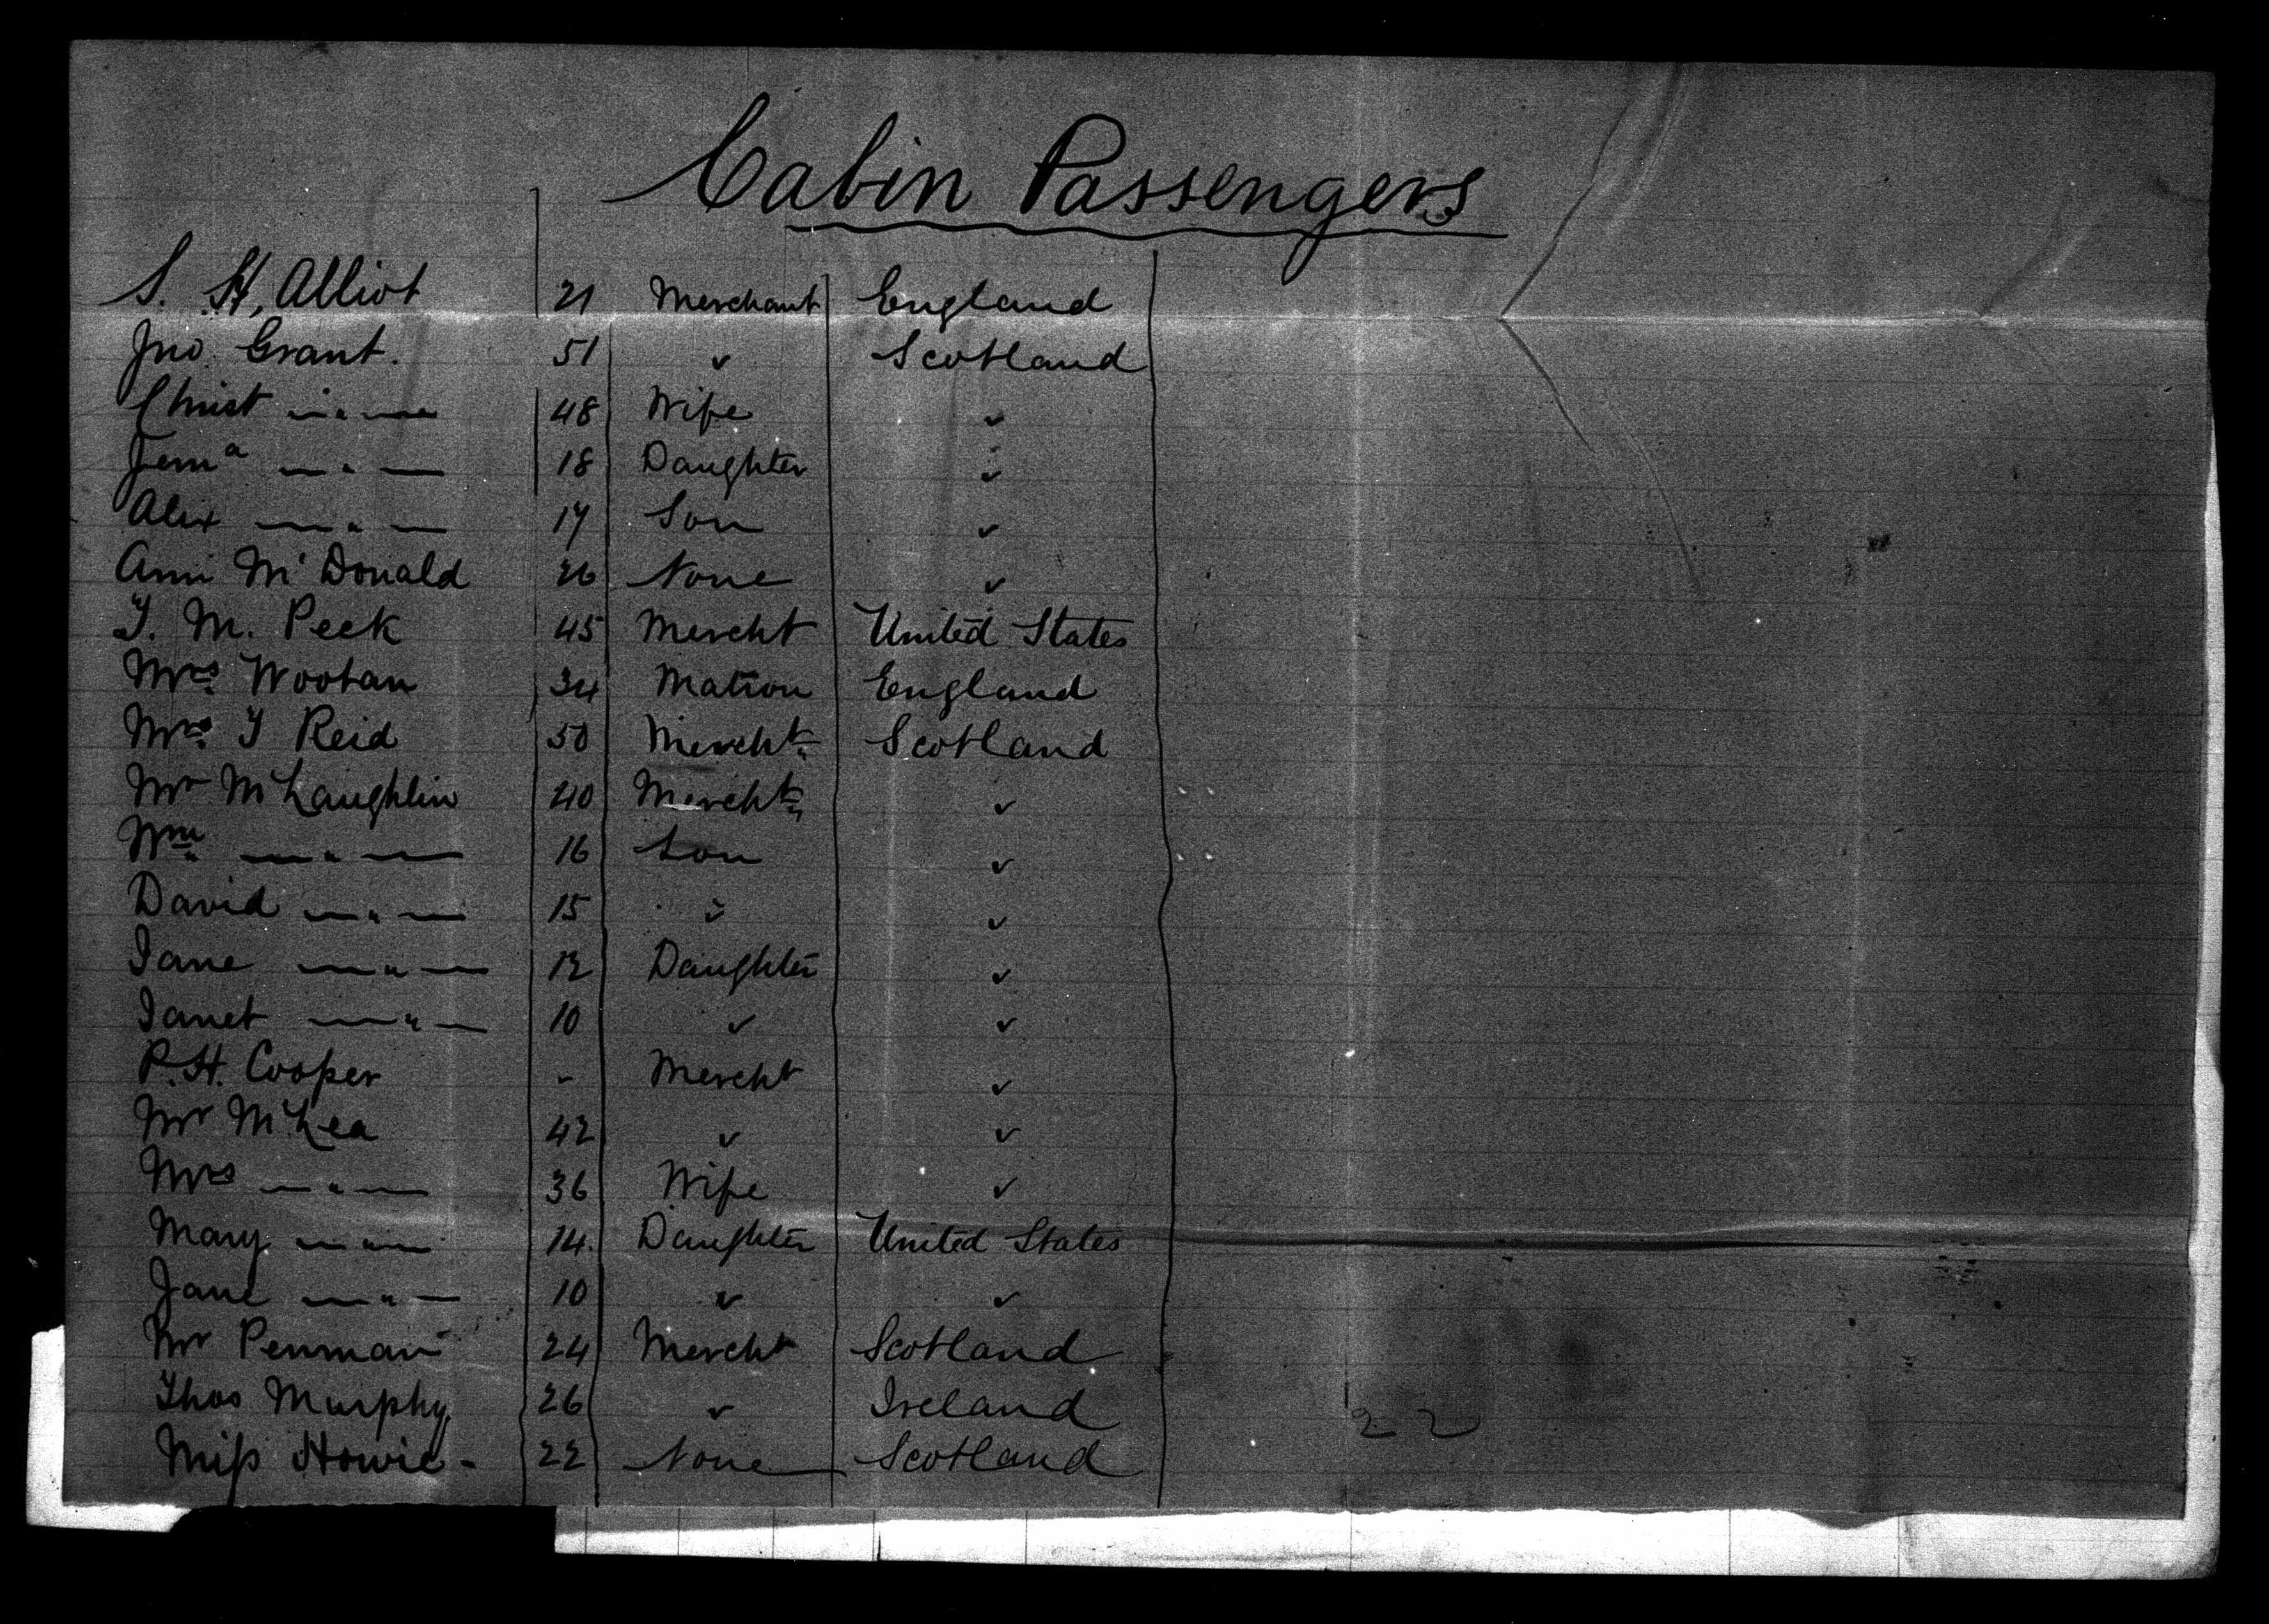 Cabin Passengers
S. H. Alliot 21 Merchant England
Jno. Grant. 51 " Scotland
Christ — " — 48 Wife "
Jemª — " — 18 Daughter "
Alex — " — 17 Son "
Ann McDonald 26 None "
T. M. Peck 45 Mercht United States
Mrs. Wootan 34 Matron England
Mrs. J Reid 50 Mercht. Scotland
Mr McLaughlin 40 Mercht. "
Wm. — " — 16 Son "
David — " — 15 " "
Jane — " — 12 Daughter "
Janet — " — 10 " "
P. H. Cooper - Mercht "
Mr McLea 42 " "
Mrs — " — 36 Wife "
Mary — " — 14. Daughter United States
Jane — " — 10 " "
Mr Penman 24 Mercht Scotland
Thos Murphy 26 " Ireland
Miss Howie - 22 None Scotland
22